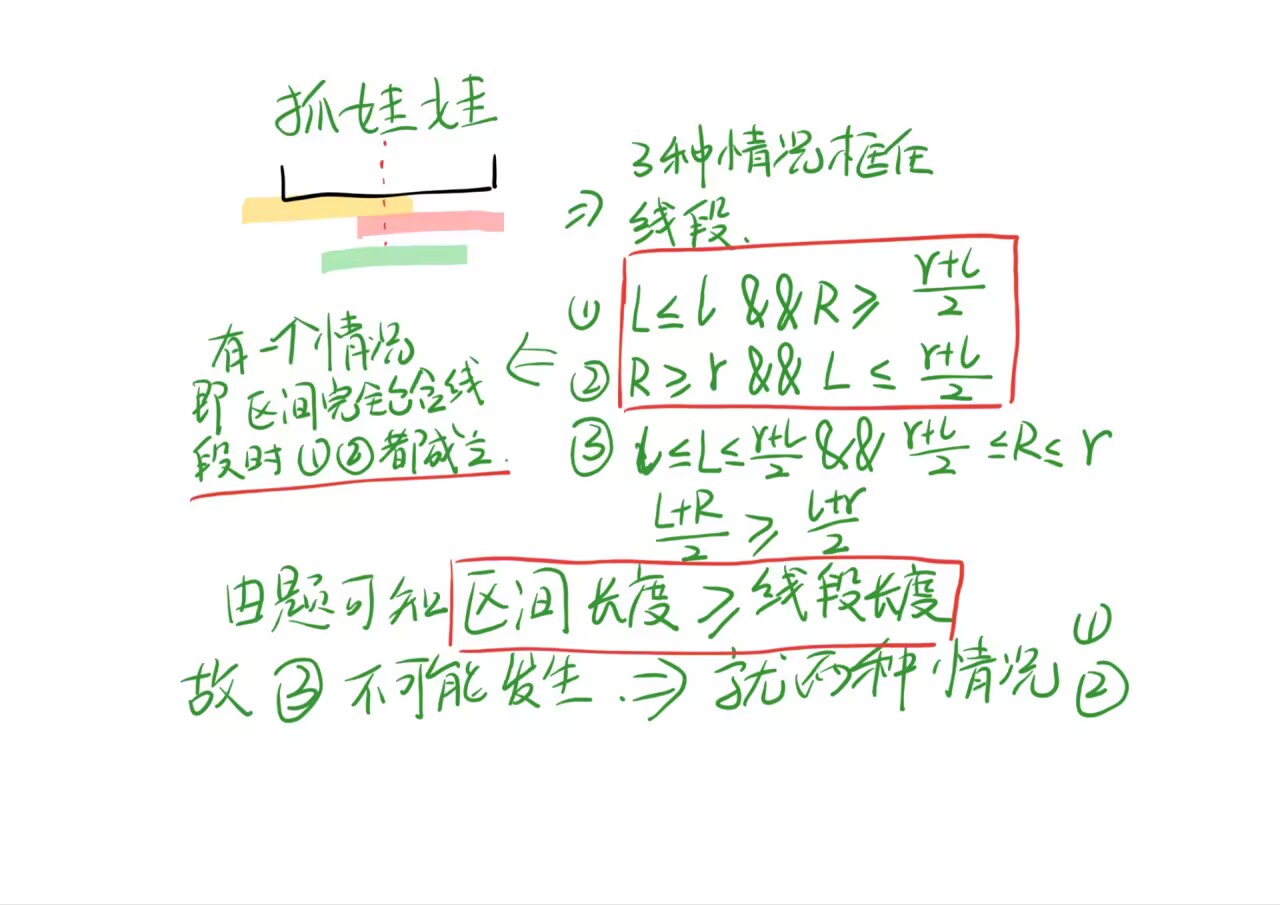 抓娃娃
3种情况框住
⇒ 线段.
① L≤l &&R≥ (r+l)/2
② R≥r && L≤ (r+l)/2
有一个情况 ⇐
即区间完全包含线
段时①②都成立.
③ l≤L≤(r+l)/2 && (r+l)/2 ≤R≤ r
(L+R)/2 ≥ (l+r)/2
由题可知 区间长度≥线段长度
故③不可能发生.⇒就两种情况 ① ②